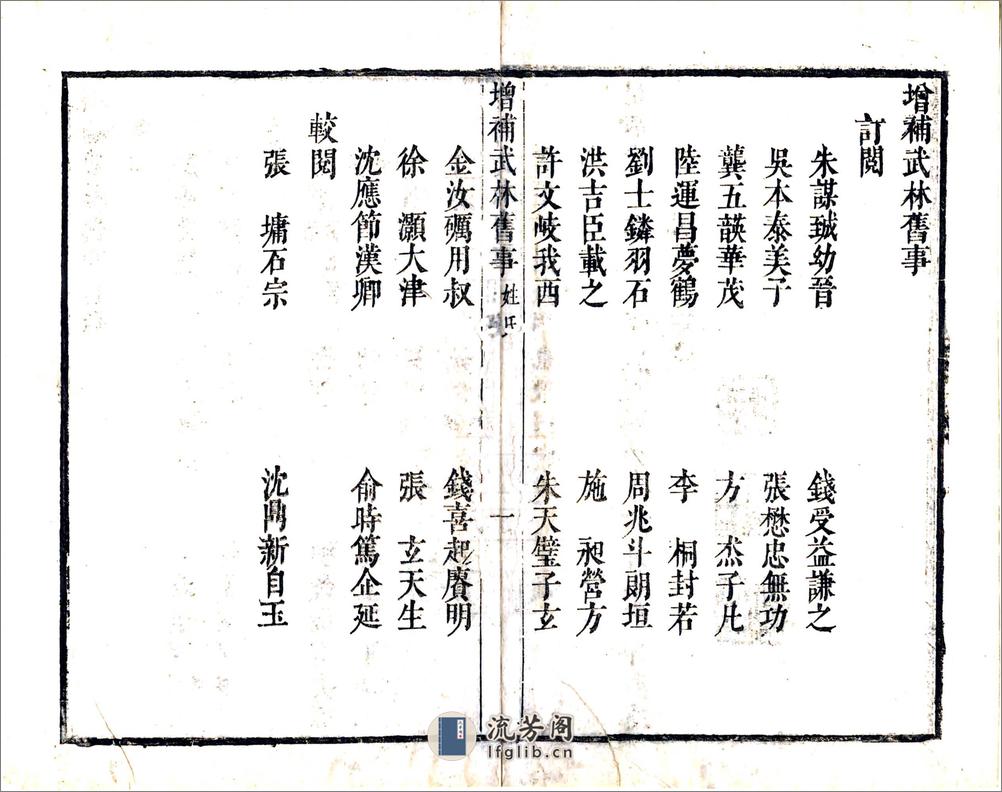 增補武林舊事
訂閱
朱謀㙔幼晉　錢受益謙之
吳本泰美子　張懋忠無功
龔五韺華茂　方　杰子凡
陸運昌夢鶴　李　桐封若
劉士鏻羽石　周兆斗朗垣
洪吉臣載之　施　昶營方
許文岐我西　朱天璧子玄
增補武林舊事　姓氏　一
金汝礪用叔　錢喜起賡明
徐　灝大津　張　玄天生
沈應節漢卿　俞時篤企延
較閱
張　墉石宗　沈鼎新自玉
流芳阁
lfglib.cn